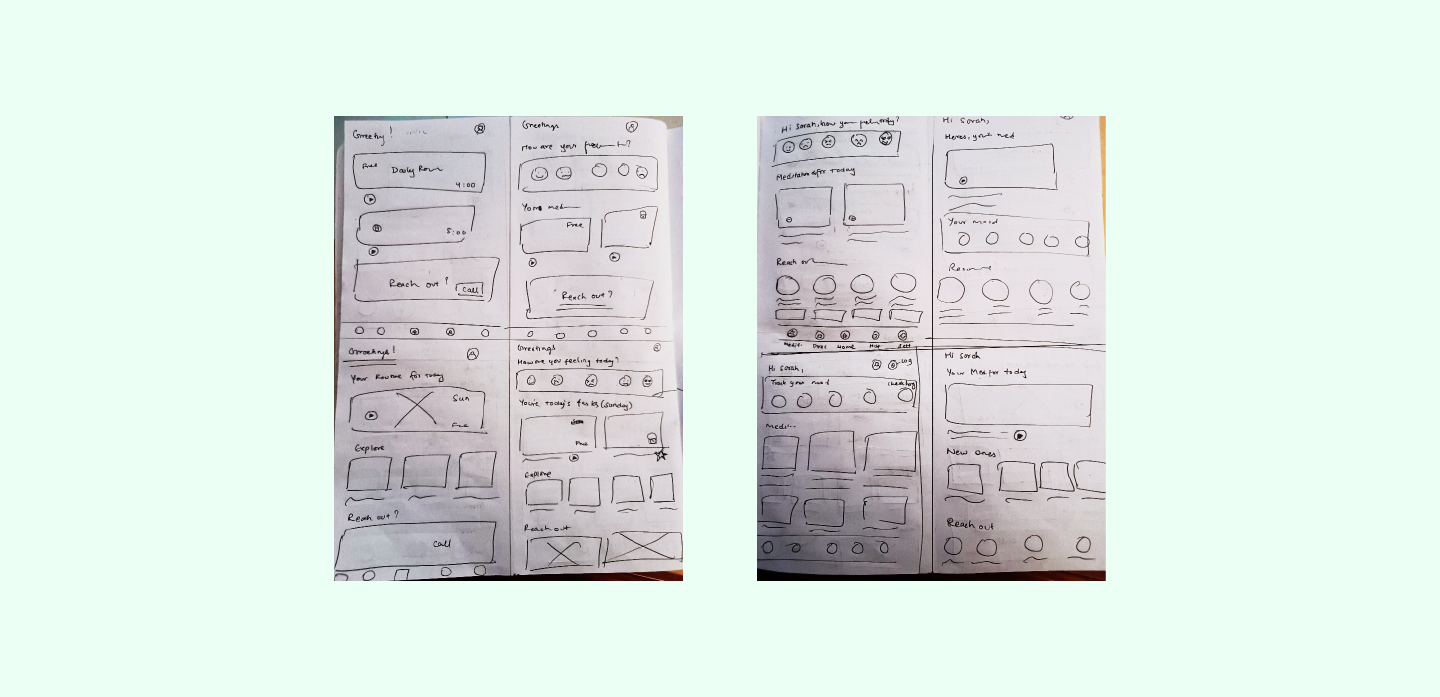 Greeting!
Free
Daily
4:00
5:00
Reach out?
Call
Greetings
How are you
Your
Free
Reach out?
Greetings!
Your Routine for today
Sun
Free
Explore
Reach out?
Call
Greetings
How are you feeling today?
You're Today's tasks (Sunday)
Free
Explore
Reach out
Hi Sarah, how you today?
Meditations for Today
Reach out
Home
Hi Sarah,
Your mood
Hi Sarah,
Log
Track your mood
Check log
Medi
Hi Sarah
Your Med for today
New ones
Reach out